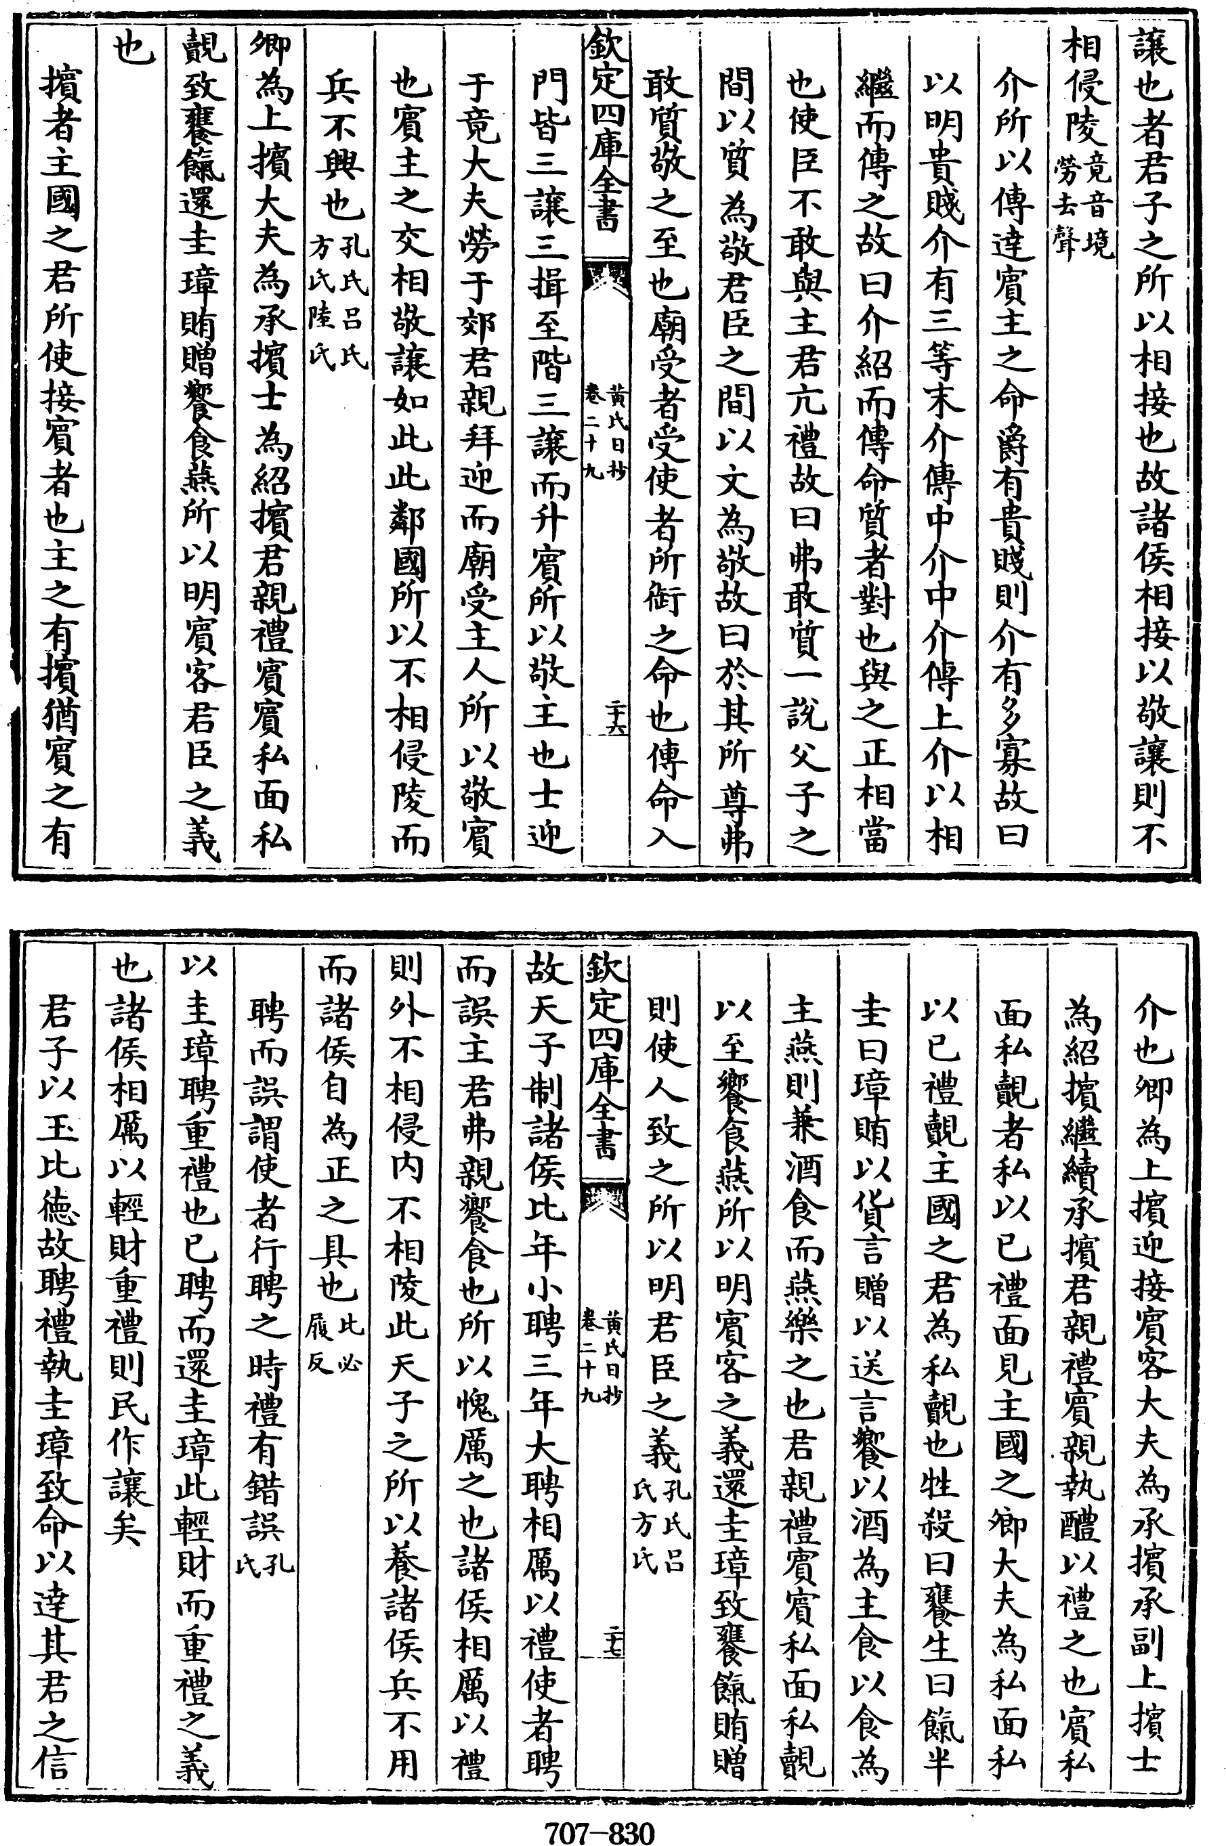 讓也者君子之所以相接也故諸侯相接以敬讓則不
相侵陵竟音境勞去聲
介所以傳達賔主之命爵有貴賤則介有多寡故曰
以明貴賤介有三等末介傳中介中介傳上介以相
繼而傳之故曰介紹而傳命質者對也與之正相當
也使臣不敢與主君亢禮故曰弗敢質一說父子之
間以質為敬君臣之間以文為敬故曰於其所尊弗
敢質敬之至也廟受者受使者所銜之命也傳命入
欽定四庫全書
黄氏日抄
卷二十九
二十六
門皆三讓三揖至階三讓而升賔所以敬主也士迎
于竟大夫勞于郊君親拜迎而廟受主人所以敬賔
也賔主之交相敬讓如此此鄰國所以不相侵陵而
兵不興也孔氏吕氏方氏陸氏
卿為上擯大夫為承擯士為紹擯君親禮賔賔私面私
覿致饔餼還圭璋賄贈饗食燕所以明賔客君臣之義
也
擯者主國之君所使接賔者也主之有擯猶賔之有
介也卿為上擯迎接賔客大夫為承擯承副上擯士
為紹擯繼續承擯君親禮賔親執醴以禮之也賔私
面私覿者私以已禮面見主國之卿大夫為私面私
以已禮覿主國之君為私覿也牲殺曰饔生曰餼半
圭曰璋賄以貨言贈以送言饗以酒為主食以食為
主燕則兼酒食而燕樂之也君親禮賔賔私面私覿
以至饗食燕所以明賔客之義還圭璋致饔餼賄贈
則使人致之所以明君臣之義孔氏吕氏方氏
欽定四庫全書
黄氏日抄
卷二十九
二十七
故天子制諸侯比年小聘三年大聘相厲以禮使者聘
而誤主君弗親饗食也所以愧厲之也諸侯相厲以禮
則外不相侵内不相陵此天子之所以養諸侯兵不用
而諸侯自為正之具也比必履反
聘而誤謂使者行聘之時禮有錯誤孔氏
以圭璋聘重禮也已聘而還圭璋此輕財而重禮之義
也諸侯相厲以輕財重禮則民作讓矣
君子以玉比徳故聘禮執圭璋致命以達其君之信
707-830